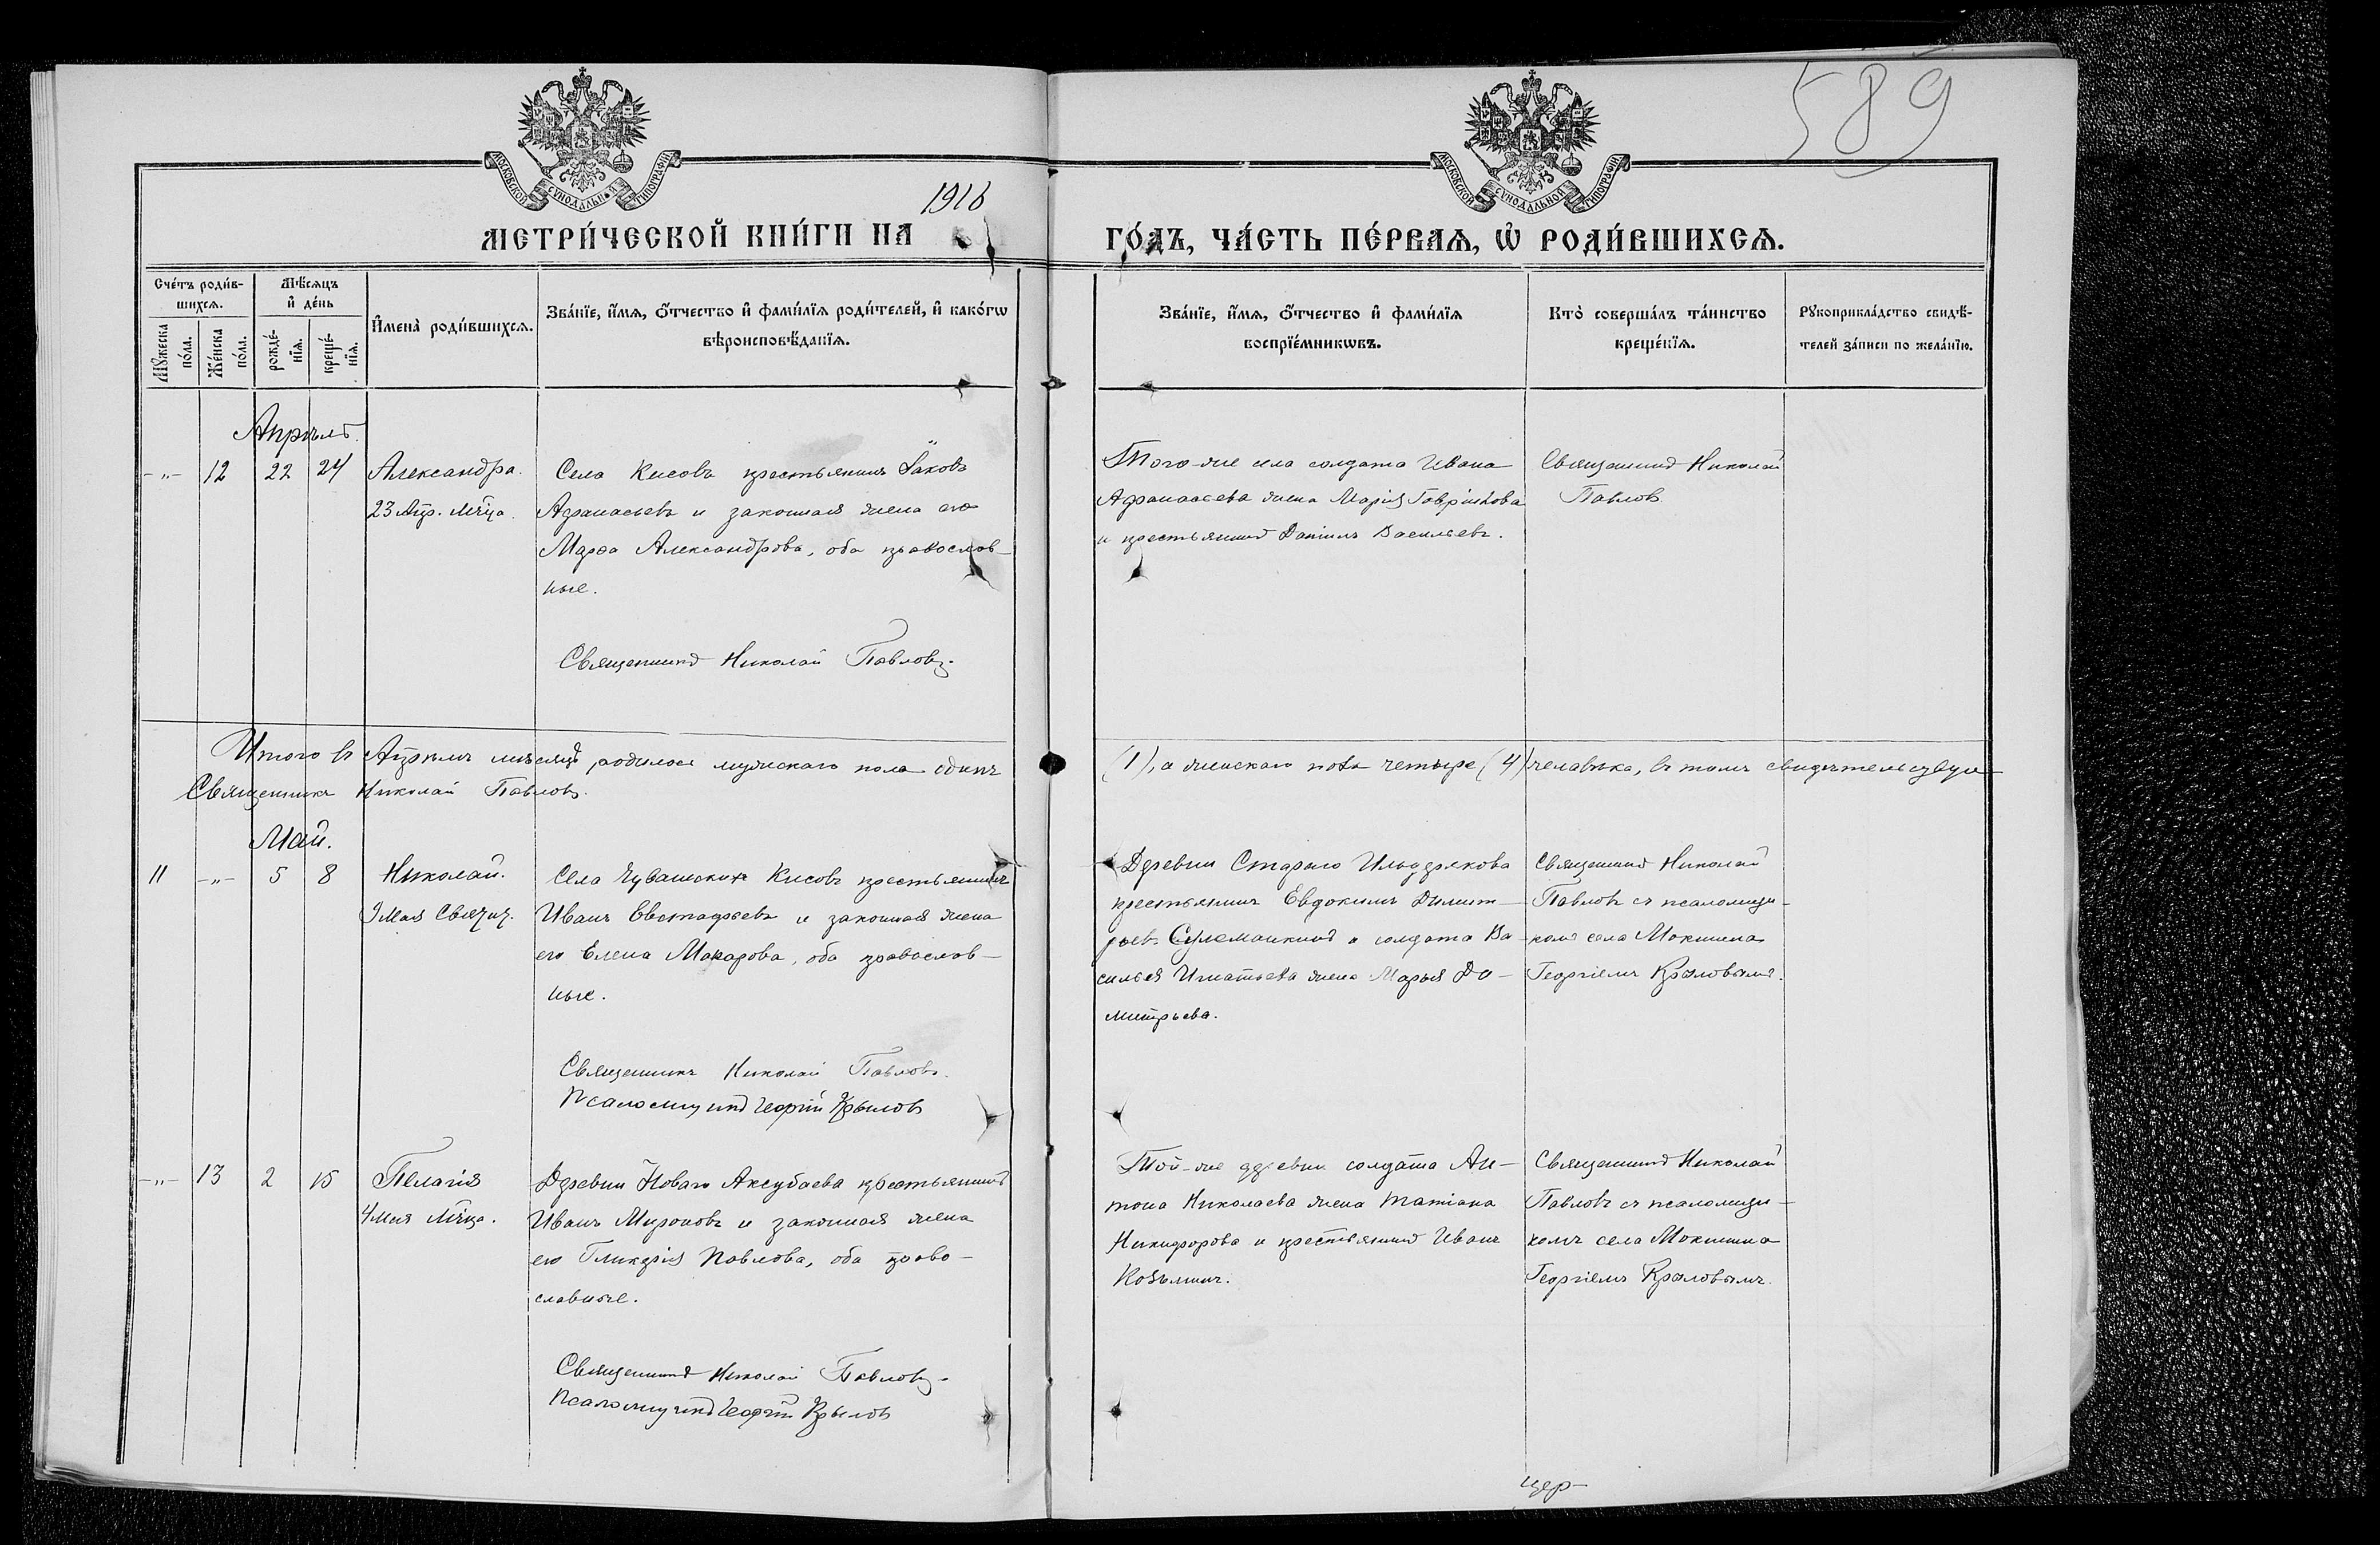 589
МОСКОВСКОЙ СѴНОДАЛЬНОЙ ТИПОГРАФІИ
МОСКОВСКОЙ СѴНОДАЛЬНОЙ ТИПОГРАФІИ
МЕТРИ́ЧЕСКОЙ КНИ́ГИ НА 1916 ГО́ДЪ, ЧА́СТЬ ПЕ́РВАѦ, Ѽ РОДИ́ВШИХСѦ.
Сче́тъ роди́в-
шихсѧ.
Мꙋжеска по́ла.
Же́нска по́ла.
Мѣ́сѧцъ
и҆ де́нь
рожде́-
нїѧ.
креще́-
нїѧ.
И҆мена̀ роди́вшихсѧ.
Зва́нїе, и҆́мѧ, ѻ҆́тчество и҆ фами́лїѧ роди́телей, и҆ како́гѡ
вѣроисповѣ́данїѧ.
Зва́нїе, и҆́мѧ, ѻ҆́тчество и҆ фами́лїѧ
воспрїе́мникѡвъ.
Кто̀ соверша́лъ та́инство
креще́нїѧ.
Рꙋкоприкла́дство свидѣ́-
телей за́писи по жела́нїю.
Апрѣль.
-„- 12 22 24 Александра.
23 Апр. Мч҃ца.
Села Кисовъ крестьянинъ Іаковъ
Афанасьевъ и законная жена его
Марѳа Александрова, оба православ-
ные.
Священникъ Николай Павловъ.
Того-же села солдата Ивана
Афанасьева жена Марія Гаврилова
и крестьянинъ Даніилъ Васильевъ.
Священникъ Николай
Павловъ
Итого въ Апрѣлѣ мѣсяцѣ родилось мужскаго пола одинъ (1), а женскаго пола четыре (4) человѣка, въ томъ свидѣтельствую
Священникъ Николай Павловъ.
Май.
11 -„- 5 8 Николай.
9 Мая Святит.
Села Чувашскихъ Кисовъ крестьянинъ
Иванъ Евстафьевъ и законная жена
его Елена Макарова, оба православ-
ные.
Священникъ Николай Павловъ.
Псаломщикъ Георгій Крыловъ
Деревни Стараго Ильдерякова
крестьянинъ Евдокимъ Димит-
ріевъ Сулеманкинъ и солдата Ва-
силія Игнатьева жена Марья Ди-
митрьева.
Священникъ Николай
Павловъ съ псаломщи-
комъ села Мокшина
Георгіемъ Крыловымъ.
-„- 13 2 15 Пелагія
4 Мая Мч҃ца.
Деревни Новаго Аксубаева крестьянинъ
Иванъ Мироновъ и законная жена
его Гликерія Павлова, оба право-
славные.
Священникъ Николай Павловъ.
Псаломщикъ Георгій Крыловъ
Той-же деревни солдата Ан-
тона Николаева жена Татіана
Никифорова и крестьянинъ Иванъ
Козьминъ.
Священникъ Николай
Павловъ съ псаломщи-
комъ села Мокшина
Георгіемъ Крыловымъ.
цер-